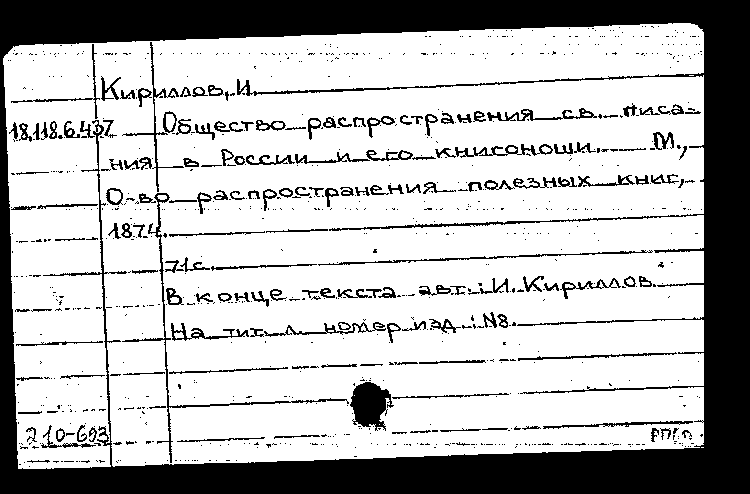 Кириллов, И.
18.118.6.437 Общество распространения св. писа-
ния в России и его книгоноши. М.,
О-во распространения полезных книг,
1874.
71с.
В конце текста авт.: И. Кириллов
На тит. л. номер изд.: №8.
210-693